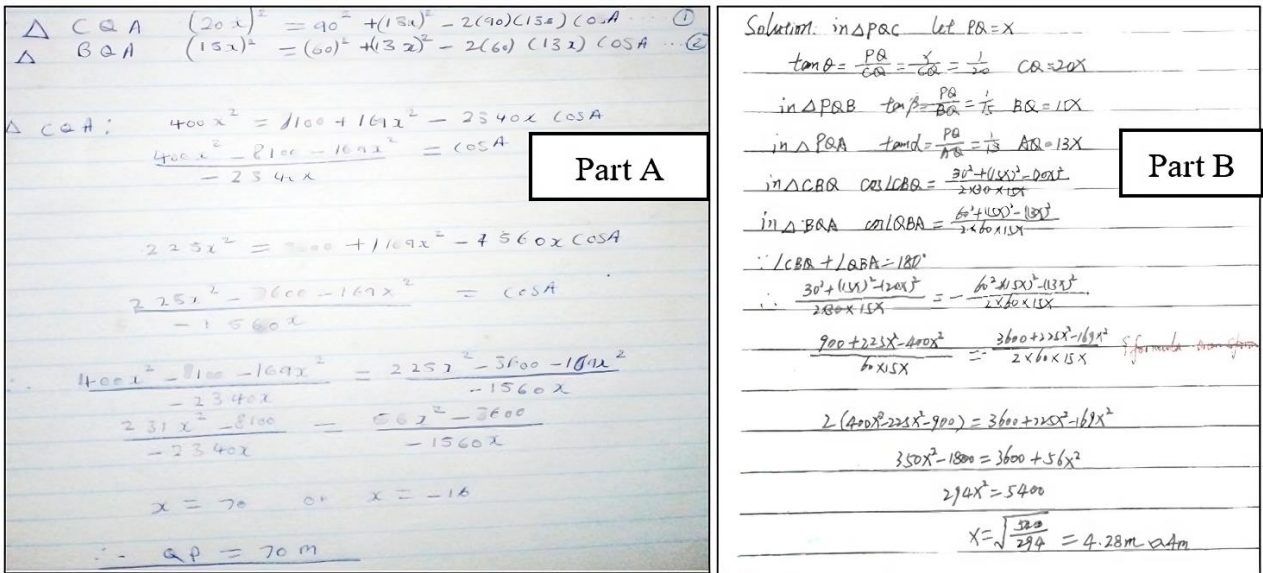 △ CQA (20x)² = 90² + (13x)² - 2(90)(13x) COSA ①
△ BQA (15x)² = (60)² + (13x)² - 2(60)(13x) COSA ... ②
△ CQA: 400x² = 8100 + 169x² - 2340x COSA
400x² - 8100 - 169x² / - 2340x = COSA
Part A
225x² = 3600 + 169x² - 1560x COSA
225x² - 3600 - 169x² / - 1560x = COSA
∴ 400x² - 8100 - 169x² / - 2340x = 225x² - 3600 - 169x² / - 1560x
231x² - 8100 / - 2340x = 56x² - 3600 / - 1560x
x = 70 or x = -16
∴ QP = 70 m
Solution: in △PQC let PQ = X
tanθ = PQ/CQ = X/CQ = 1/20 CQ = 20X
in △PQB tanβ = PQ/BQ = 1/15 BQ = 15X
in △PQA tanα = PQ/AQ = 1/13 AQ = 13X
Part B
in △CBQ cos∠CBQ = 30² + (15X)² - (20X)² / 2×30×15X
in △BQA cos∠QBA = 60² + (15X)² - (13X)² / 2×60×15X
∵ ∠CBQ + ∠QBA = 180°
∴ 30² + (15X)² - (20X)² / 2×30×15X = - 60² + (15X)² - (13X)² / 2×60×15X
900 + 225X² - 400X² / 60×15X = - 3600 + 225X² - 169X² / 2×60×15X formula
2(400X² - 225X² - 900) = 3600 + 225X² - 169X²
350X² - 1800 = 3600 + 56X²
294X² = 5400
= 4.28m ≈ 4m